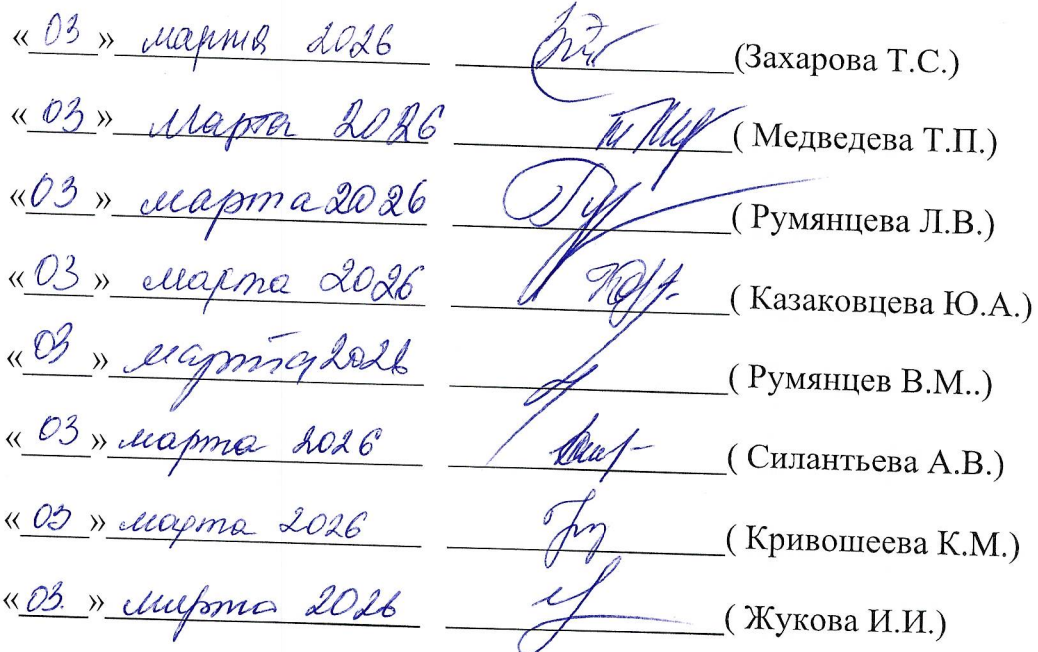 «03» марта 2026 (Захарова Т.С.)
«03» марта 2026 ( Медведева Т.П.)
«03» марта 2026 ( Румянцева Л.В.)
«03» марта 2026 ( Казаковцева Ю.А.)
«03» марта 2026 ( Румянцев В.М..)
«03» марта 2026 ( Силантьева А.В.)
«03» марта 2026 ( Кривошеева К.М.)
«03.» марта 2026 ( Жукова И.И.)